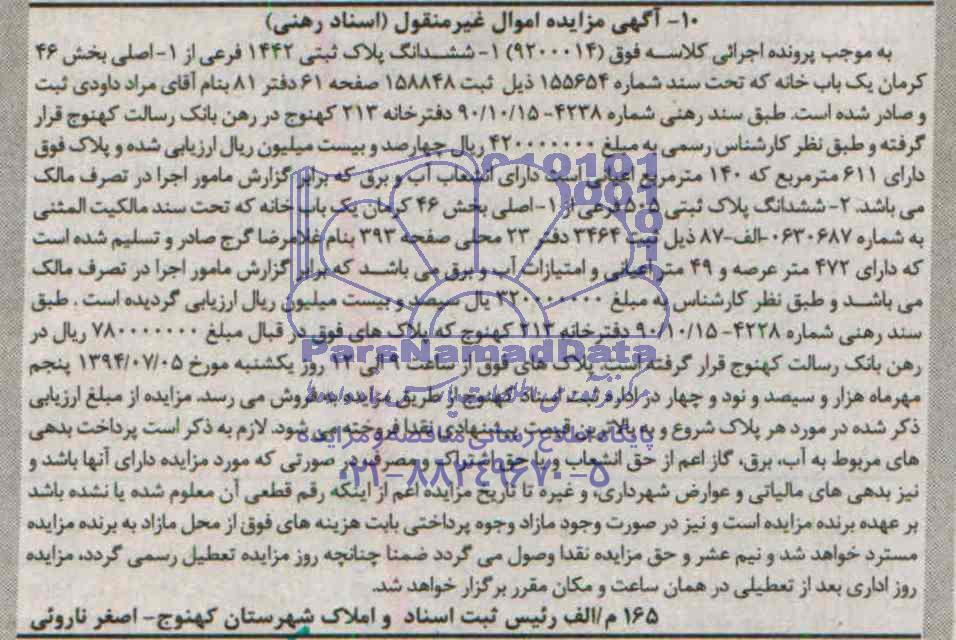 ۱۰- آگهی مزایده اموال غیرمنقول (اسناد رهنی)
به موجب پرونده اجرائی کلاسه فوق (۹۲۰۰۰۱۴) ۱- ششدانگ پلاک ثبتی ۱۴۴۲ فرعی از ۱-اصلی بخش ۴۶
کرمان یک باب خانه که تحت سند شماره ۱۵۵۶۵۴ ذیل ثبت ۱۵۸۸۴۸ صفحه ۶۱ دفتر ۸۱ بنام آقای مراد داودی ثبت
و صادر شده است. طبق سند رهنی شماره ۴۲۳۸-۹۰/۱۰/۱۵ دفترخانه ۲۱۳ کهنوج در رهن بانک رسالت کهنوج قرار
گرفته و طبق نظر کارشناس رسمی به مبلغ ۴۲۰۰۰۰۰۰۰ ریال چهارصد و بیست میلیون ریال ارزیابی شده و پلاک فوق
دارای ۶۱۱ مترمربع که ۱۴۰ مترمربع اعیانی است دارای انشعاب آب و برق که برابر گزارش مامور اجرا در تصرف مالک
می باشد. ۲-ششدانگ پلاک ثبتی ۵۰۵ فرعی از ۱-اصلی بخش ۴۶ کرمان یک باب خانه که تحت سند مالکیت المثنی
به شماره ۰۶۳۰۶۸۷-الف-۸۷ ذیل ثبت ۳۴۶۴ دفتر ۲۳ محلی صفحه ۳۹۳ بنام غلامرضا گرج صادر و تسلیم شده است
که دارای ۴۷۲ متر عرصه و ۴۹ متر اعیانی و امتیازات آب و برق می باشد که برابر گزارش مامور اجرا در تصرف مالک
می باشد و طبق نظر کارشناس به مبلغ ۳۲۰۰۰۰۰۰۰ یال سیصد و بیست میلیون ریال ارزیابی گردیده است . طبق
سند رهنی شماره ۴۲۲۸-۹۰/۱۰/۱۵ دفترخانه ۲۱۳ کهنوج که پلاک های فوق در قبال مبلغ ۷۸۰۰۰۰۰۰۰ ریال در
رهن بانک رسالت کهنوج قرار گرفته است، پلاک های فوق از ساعت ۹ الی ۱۲ روز یکشنبه مورخ ۱۳۹۴/۰۷/۰۵ پنجم
مهرماه هزار و سیصد و نود و چهار در اداره ثبت اسناد کهنوج از طریق مزایده به فروش می رسد. مزایده از مبلغ ارزیابی
ذکر شده در مورد هر پلاک شروع و به بالاترین قیمت پیشنهادی نقدا فروخته می شود. لازم به ذکر است پرداخت بدهی
های مربوط به آب، برق، گاز اعم از حق انشعاب و یا حق اشتراک و مصرف در صورتی که مورد مزایده دارای آنها باشد و
نیز بدهی های مالیاتی و عوارض شهرداری، و غیره تا تاریخ مزایده اعم از اینکه رقم قطعی آن معلوم شده یا نشده باشد
بر عهده برنده مزایده است و نیز در صورت وجود مازاد وجوه پرداختی بابت هزینه های فوق از محل مازاد به برنده مزایده
مسترد خواهد شد و نیم عشر و حق مزایده نقدا وصول می گردد ضمنا چنانچه روز مزایده تعطیل رسمی گردد، مزایده
روز اداری بعد از تعطیلی در همان ساعت و مکان مقرر برگزار خواهد شد.
۱۶۵ م/الف رئیس ثبت اسناد و املاک شهرستان کهنوج- اصغر ناروئی
ParsNamadData
پایگاه اطلاع رسانی مناقصه و مزایده
۰۲۱-۸۸۳۴۹۶۷۰-۵